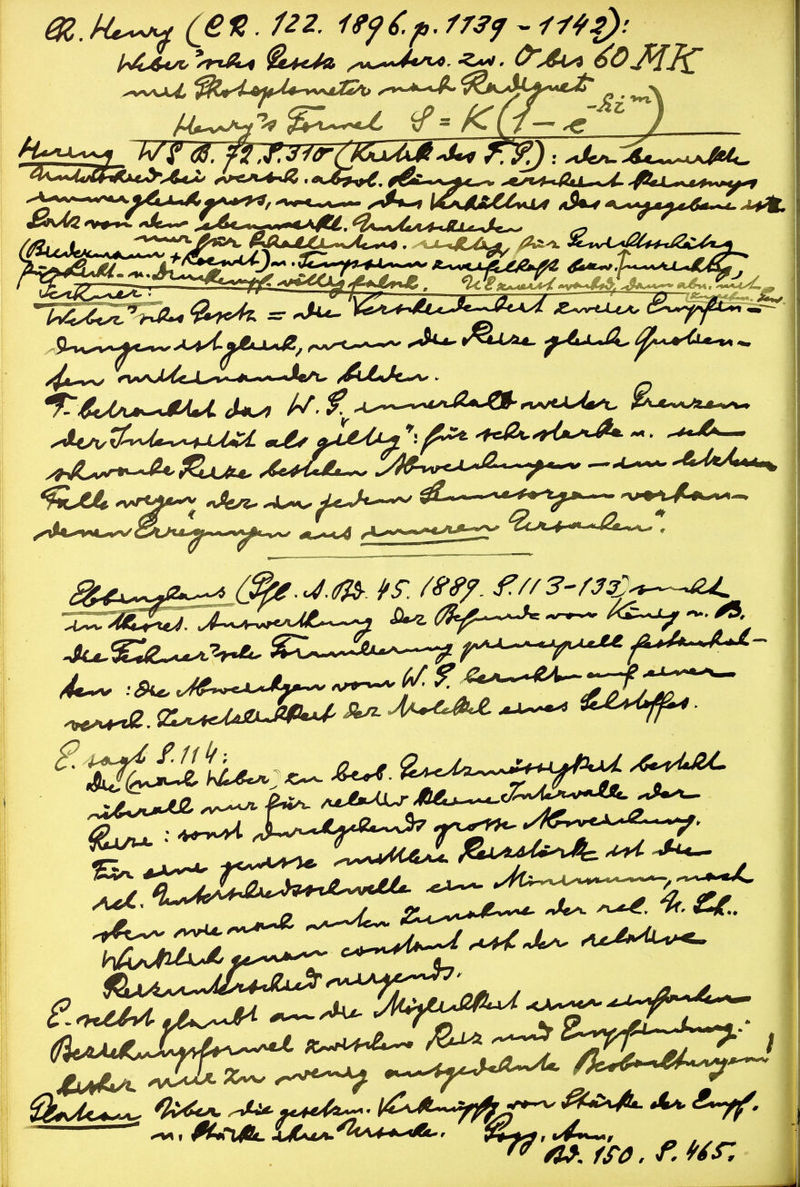 Ch. Henry (CR. 122. 1896. p. 1139 - 1142):
Weber'sches Gesetz unters. zw. 0 bis 60 MK
mit Photoptometer nach Radiguet
Henry's Formel S = K (1 - e^{-λi^m})
Hering WSB. 72. S. 310 (Kritik des F. G.): der bemerkte
Unterschied bei versch. absol. Längen erscheint keineswegs
immer gleich gross, wenn das Verhältnis das angegebene ist
Satz von den ebenmerkl. Unterschieden
nur für Schallintens. richtig, für Gewichtsschätzg
(Biedermann + Loewit) u. Tempsinn zweifelhaft bezw. unrichtig,
für Licht- u. Druckempf. völlig falsch. U E zuerst wachsd, dann abn. mit
Fechner:
Weber'sches Gesetz = die Verschiedenheit zweier Empfin-
dungen ist gleich, wenn die Reize gleiche Quotien-
ten miteinander bilden.
F. betrachtet das W. G. „innerhalb weiter Grenzen
der Intensität als giltig": für sehr starke u. sehr
schwache Reize bestehen Abweichungen - im letzteren
Falle wegen „der in jedem Sinnesorgan vorhan-
denen Erregungen aus inneren Ursachen".
Ebbinghaus (Pfl. A. Bd. 45. 1889. S. 113-133) sucht
in theoret. Auswerthung der Befunde von König u. B.
die Fechner'sche Formulierung principiell festzuhal-
ten: die Abweichgen vom W. G. beruhten auf einer
versch. Zersetzlichkeit der Molekel eines Sehstoffes.
E. sagt S. 114:
Die (nach Weber) zu beob. Gesetzmässigkeit besteht
überall nur für relativ kleine Intervalle der
Reize: sonst durchgehends grosse Abweichung.
Für eine gewisse mittlere Reizstärke ist die
rel. Unterschiedsschwelle ein Minimum, nach
oben wie nach unten Zunahme der rel. U. Sch..
Wirklich genau constant ist der relative
Reizunterschied nirgends.
E. selbst glaubt an die Möglichkeit einer einfachen
Beziehungsformel zwischen Reiz und Empfindung:
bisher nur zu wenig ausgedehnte Beobachtungen!
Plateau Über die gesetzm. Verknüpfg von Stärke der Empf.
u. Stärke ihrer Ursache. Pogg. Ann.
Bd. 150. S. 465.